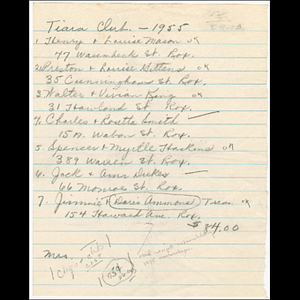 Tiara Club. — 1955
1 Henry + Louise Mason ok
47 Waumbeck St. Rox.
2 Preston + Louise Gittens ok
35 Cunningham St. Rox.
3 Walter + Vivian King ok
31 Howland St Rox.
4. Charles + Rosetta Smith —
15 A. Wabon St. Rox.
5 Spencer + Myrtle Haskins ok
389 Warren St. Rox.
6. Jack & Ann Dukes —
66 Monroe St. Rox.
7. Jimmie + Doris Ammons Treas ok
154 Howard Ave. Rox.
$84.00
Mrs.